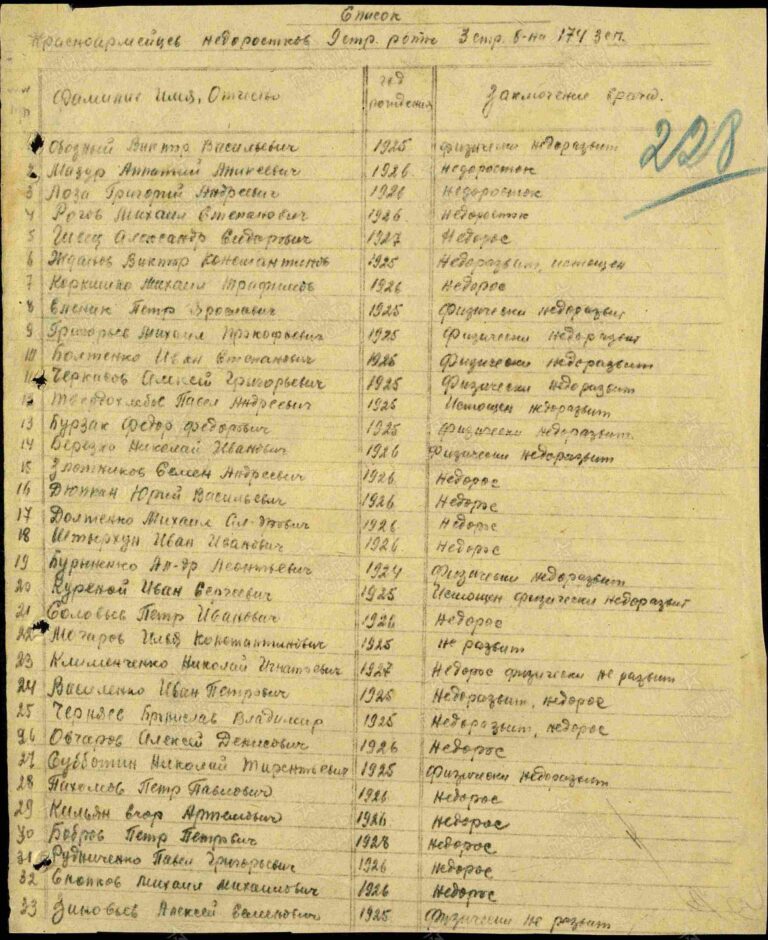 Список
Красноармейцев недоростков 9 стр. роты 3 стр. б-на 174 зсп.
Фамилия Имя, Отчество год рождения Заключение врача.
228
1 Обозный Виктор Васильевич 1925 физически недоразвит
2 Мазур Анатолий 1926 недоросток
3 Лоза Григорий Андреевич 1926 недоросток
4 Рогов Михаил Степанович 1926 недоросток
5 Александр Сидорович 1927 Недорос
6 Жданов Виктор Константинов 1925 Недоразвит, истощен
7 Михаил Трафимов 1926 недорос
8 Петр Ярославич 1925 физически недоразвит
9 Григорьев Михаил Прокофьевич 1925 физически недоразвит
10 Болтенко Иван Степанович 1926 физически недоразвит
11 Черкасов Алексей Григорьевич 1925 физически недоразвит
12 Твердохлебов Павел Андреевич 1925 Истощен недоразвит
13 Бурзак Федор Федорович 1925 физически недоразвит
14 Березко Николай Иванович 1926 физически недоразвит
15 Злотников Семен Андреевич 1926 недорос
16 Юрий Васильевич 1926 недорос
17 Долженко Михаил 1926 недорос
18 Иван Иванович 1926 недорос
19 Ал-др Леонтьевич 1924 физически недоразвит
20 Куреной Иван Сергеевич 1925 Истощен физически недоразвит
21 Соловьев Петр Иванович 1926 недорос
22 Мочаров Илья Константинович 1925 не развит
23 Клименченко Николай Игнатьевич 1927 Недорос физически не развит
24 Василенко Иван Петрович 1925 недоразвит, недорос
25 Черняев Бранислав Владимир 1925 недоразвит, недорос
26 Овчаров Алексей Денисович 1926 недорос
27 Субботин Николай Терентьевич 1925 физически недоразвит
28 Пахомов Петр Павлович 1926 недорос
29 Кильян Артемович 1926 недорос
30 Бобров Петр Петрович 1926 недорос
31 Рудниченко Павел Григорьевич 1926 недорос
32 Михаил Михайлович 1926 недорос
33 Зиновьев Алексей Семенович 1925 физически не развит